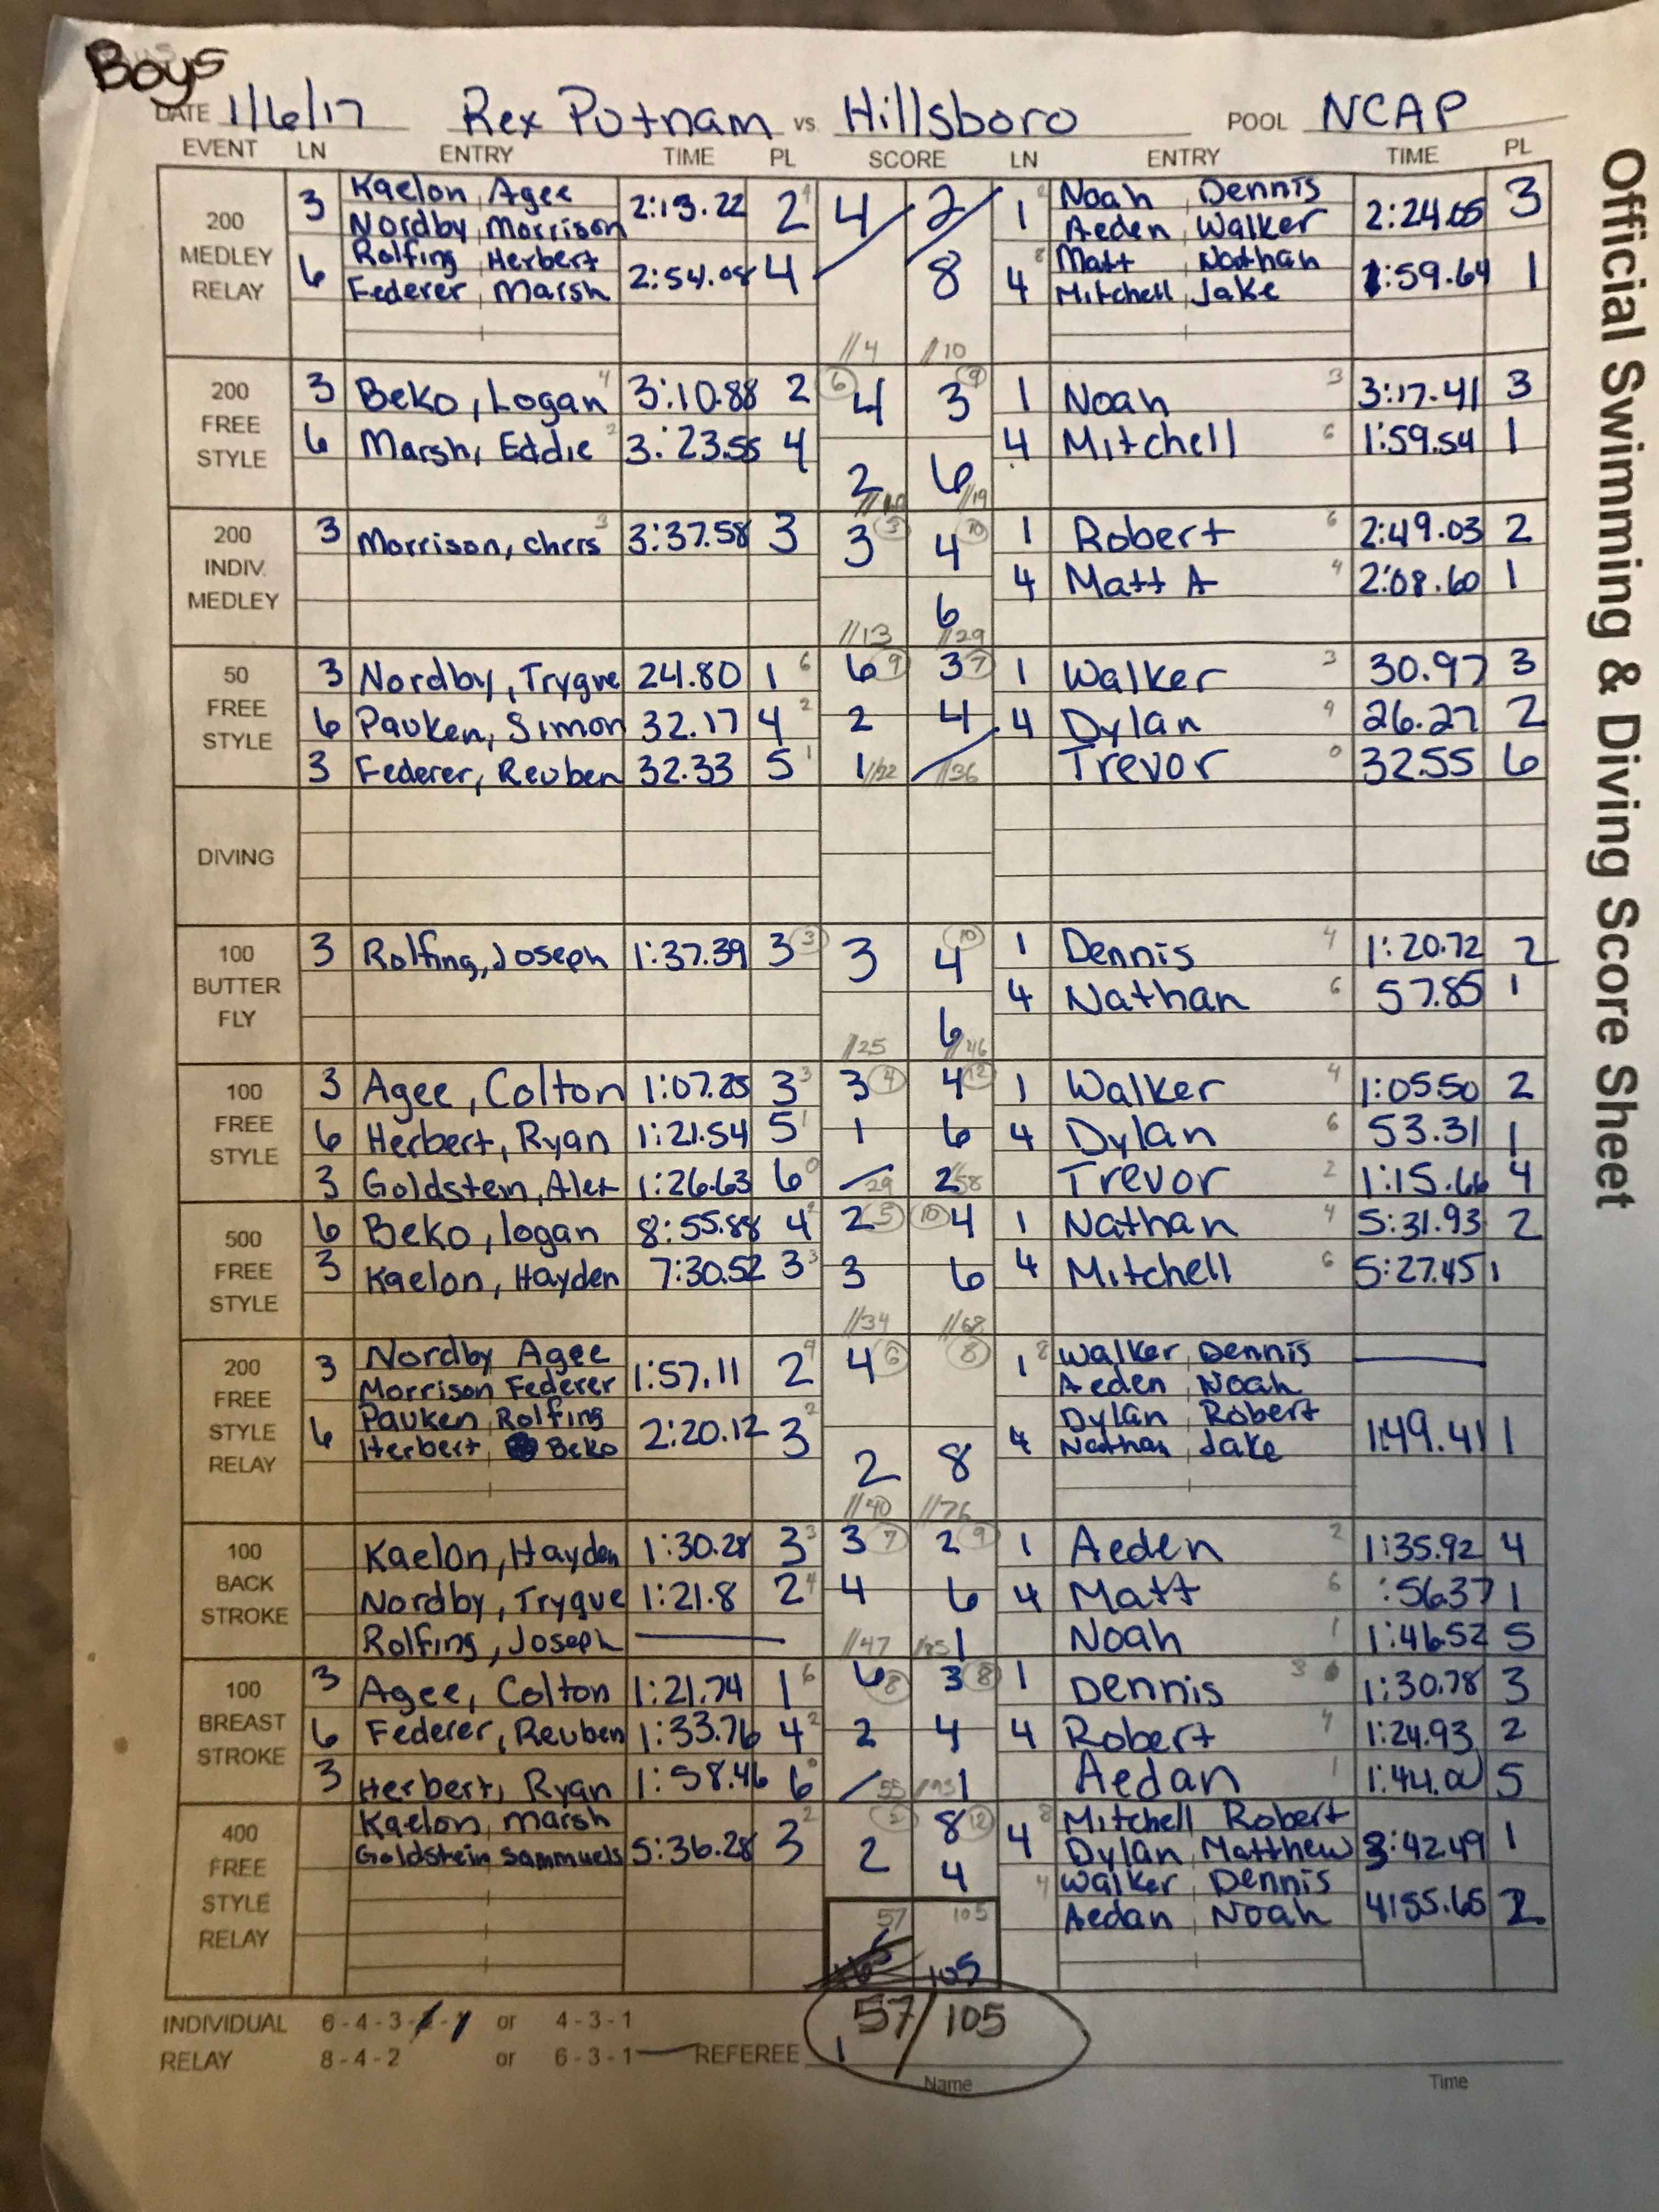 Boys
DATE 1/6/17 Rex Putnam vs. Hillsboro POOL NCAP
EVENT LN ENTRY TIME PL SCORE LN ENTRY TIME PL
200 MEDLEY RELAY
3 Kaelon, Agee Nordby, Morrison 2:13.22 2 4 2 1 Noah, Dennis Aeden, Walker 2:24.05 3
6 Rolfing, Herbert Federer, Marsh 2:54.08 4 8 4 Matt, Nathan Mitchell, Jake 1:59.64 1
//4 //10
200 FREE STYLE
3 Beko, Logan 4 3:10.88 2 6 4 3 9 1 Noah 3 3:17.41 3
6 Marsh, Eddie 2 3:23.55 4 2 6 4 Mitchell 6 1:59.54 1
//10 //19
200 INDIV. MEDLEY
3 Morrison, Chris 3 3:37.58 3 3 3 4 10 1 Robert 6 2:49.03 2
6 4 Matt A 4 2:08.60 1
//13 //29
50 FREE STYLE
3 Nordby, Trygve 24.80 1 6 6 9 3 7 1 Walker 3 30.97 3
6 Pauken, Simon 32.17 4 2 2 4 4 Dylan 26.27 2
3 Federer, Reuben 32.33 5 1 1 //22 //36 Trevor 0 32.55 6
DIVING
100 BUTTER FLY
3 Rolfing, Joseph 1:37.39 3 3 3 4 10 1 Dennis 4 1:20.72 2
6 4 Nathan 6 57.85 1
//25 //46
100 FREE STYLE
3 Agee, Colton 1:07.25 3 3 3 4 4 12 1 Walker 4 1:05.50 2
6 Herbert, Ryan 1:21.54 5 1 1 6 4 Dylan 6 53.31 1
3 Goldstein, Alex 1:26.63 6 0 29 2 58 Trevor 2 1:15.66 4
500 FREE STYLE
6 Beko, logan 8:55.88 4 2 2 5 10 4 1 Nathan 4 5:31.93 2
3 Kaelon, Hayden 7:30.52 3 3 3 6 4 Mitchell 6 5:27.45 1
//34 //68
200 FREE STYLE RELAY
3 Nordby Agee Morrison Federer 1:57.11 2 4 6 8 1 Walker, Dennis Aeden, Noah
6 Pauken, Rolfing Herbert, Beko 2:20.12 3 2 2 8 4 Dylan, Robert Nathan, Jake 1:49.41 1
//40 //76
100 BACK STROKE
Kaelon, Hayden 1:30.28 3 3 3 7 2 9 1 Aeden 2 1:35.92 4
Nordby, Trygve 1:21.8 2 4 4 6 4 Matt 6 :56.37 1
Rolfing, Joseph //47 //85 1 Noah 1 1:46.52 5
100 BREAST STROKE
3 Agee, Colton 1:21.74 1 6 6 8 3 8 1 Dennis 3 1:30.78 3
6 Federer, Reuben 1:33.76 4 2 2 4 4 Robert 4 1:24.93 2
3 Herbert, Ryan 1:58.46 6 0 55 //93 1 Aedan 1 5
400 FREE STYLE RELAY
Kaelon, Marsh Goldstein Sammuels 5:36.28 3 2 2 2 8 12 4 8 Mitchell Robert Dylan, Matthew 3:42.49 1
4 4 Walker, Dennis Aedan, Noah 4:55.65 2
57 105
105
57/105
INDIVIDUAL 6-4-3-2-1 or 4-3-1
RELAY 8-4-2 or 6-3-1 REFEREE
Name Time
Official Swimming & Diving Score Sheet